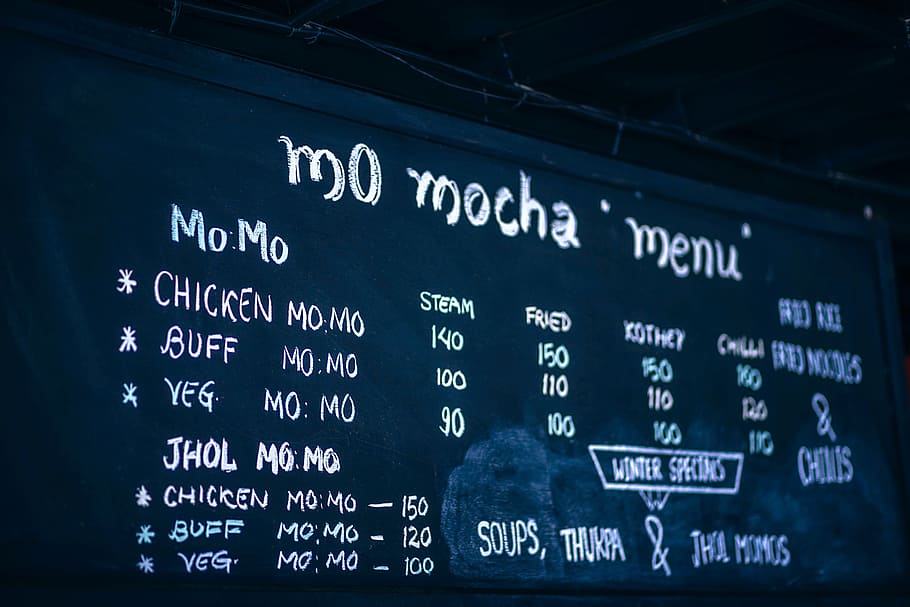 mO mocha 'menu'
Mo:Mo
STEAM FRIED KOTHEY CHILLI
* CHICKEN MO:MO 140 150 150 160
* BUFF MO:MO 100 110 110 120
* VEG. MO:MO 90 100 100 110
JHOL MO:MO
* CHICKEN MO:MO — 150
* BUFF MO:MO - 120
* VEG. MO:MO - 100
FRIED RICE
FRIED NOODLES
&
CHILLIS
WINTER SPECIALS
SOUPS, THUKPA & JHOL MOMOS